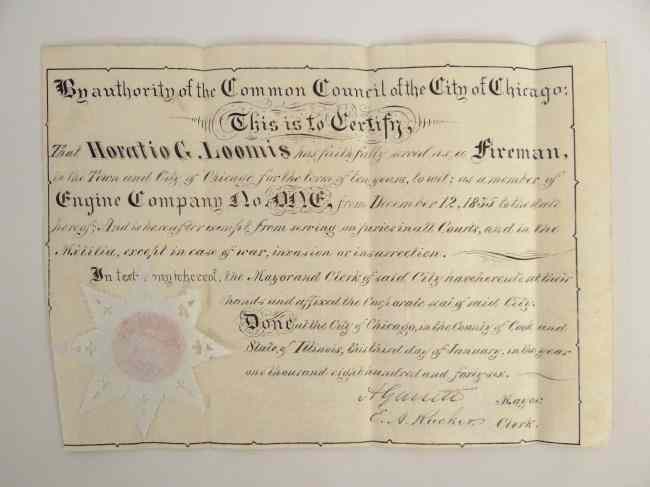 By authority of the Common Council of the City of Chicago:
This is to Certify,
That Horatio G. Loomis has faithfully served as a Fireman,
in the Town and City of Chicago for the term of ten years, to wit; as a member of
Engine Company No. ONE, from December 12, 1835 to the date
hereof; And is hereafter exempt from serving on juries in all Courts, and in the
Militia, except in case of war, invasion or insurrection.
In testimony whereof, the Mayor and Clerk of said City have hereunto set their
hands and affixed the Corporate seal of said City.
Done at the City of Chicago, in the County of Cook and
State of Illinois, this third day of January, in the year
one thousand eight hundred and forty six.
A Garrett Mayor
E. A. Rucker Clerk.